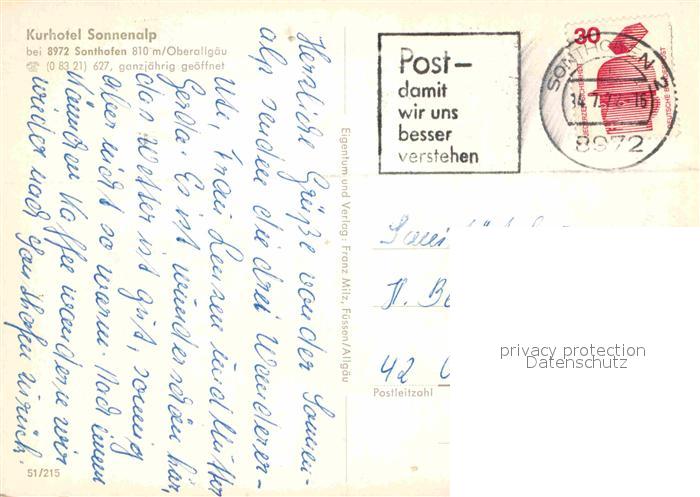 Kurhotel Sonnenalp
bei 8972 Sonthofen 810 m/Oberallgäu
☎ (0 83 21) 627, ganzjährig geöffnet
Herzliche Grüße von der Sonnen-
alp senden die drei Wanderer-
Ute, Frau Leusen und Mutter
Gerda. Es ist wunderschön hier,
das Wetter ist gut, sonnig
aber nicht so warm. Nach einem
Kännchen Kaffee wandern wir
wieder nach Sonthofen zurück.
51/215
Eigentum und Verlag: Franz Milz, Füssen/Allgäu
Post–
damit
wir uns
besser
verstehen
SONTHOFEN 2
8972
30
DEUTSCHE BUNDESPOST
H. Be
42
Postleitzahl
privacy protection
Datenschutz